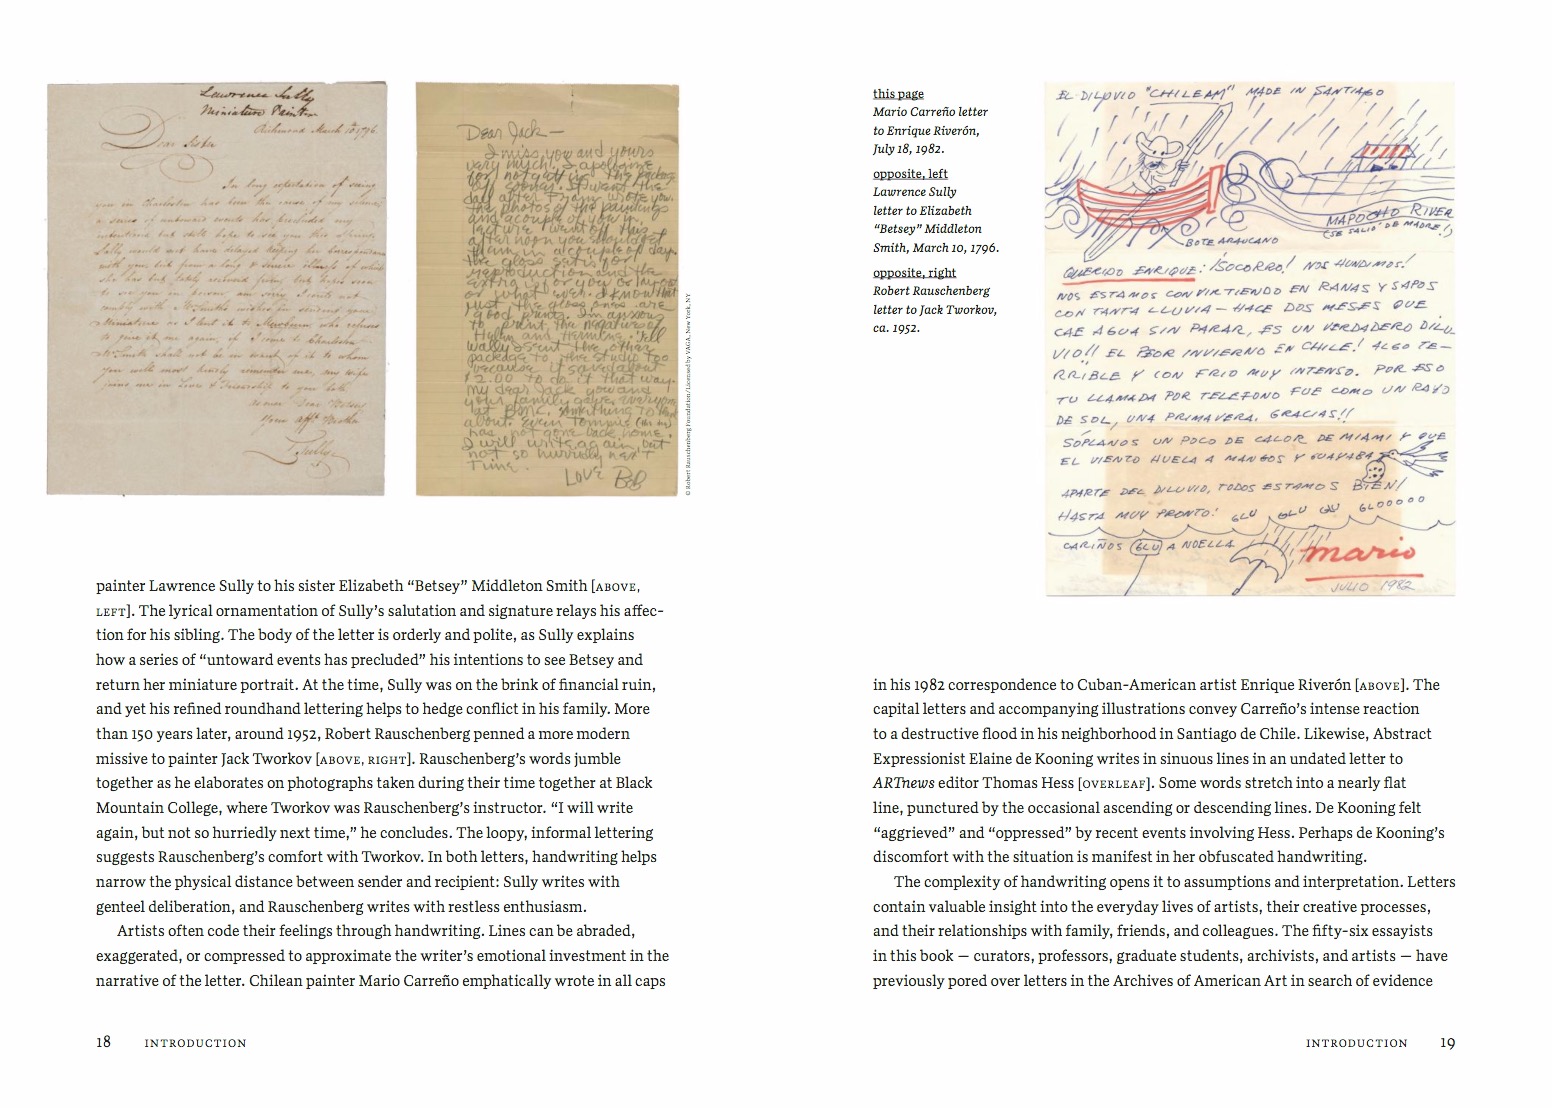 Lawrence Sully
Miniature Painter
Richmond March 10 1796.
Dear Sister
In long expectation of seeing
you in Charleston has been the cause of my silence,
a series of untoward events has precluded my
intentions but still hope to see you this
Sully would not have delayed
with you but from a long & severe illness of which
she has but lately
to see you in
with Mr Smiths wishes
Miniature as I
to give it me again, if I come to Charleston
Mr Smith shall not be in want of it to whom
you will most kindly remember me, my wife
joins me in Love & Friendship to you both
Your afft Brother
L Sully
Dear Jack—
I miss you and yours
very much. I apologise
for not getting this package
off sooner. It went the
day after I wrote you.
the photos of the paintings
and a couple of your
lecture went off this
afternoon you should get
them in a couple of days.
the gloss set is for
reproduction and the
extra is for you or layout
or what ever. I know that
just the gloss ones are
good prints. I'm anxious
to print the negatives of
Helen and Hermine. Tell
Wally I sent the other
package to the studio too
because it saved about
$2.00 to do it that way.
My dear Jack you and
your family gave everyone
at BMC something to
about. Even Tommie
has not gone back home.
I will write again, but
not so hurriedly next
time.
Love Bob
© Robert Rauschenberg Foundation/Licensed by VAGA, New York, NY
painter Lawrence Sully to his sister Elizabeth “Betsey” Middleton Smith [ABOVE,
LEFT]. The lyrical ornamentation of Sully’s salutation and signature relays his affec-
tion for his sibling. The body of the letter is orderly and polite, as Sully explains
how a series of “untoward events has precluded” his intentions to see Betsey and
return her miniature portrait. At the time, Sully was on the brink of financial ruin,
and yet his refined roundhand lettering helps to hedge conflict in his family. More
than 150 years later, around 1952, Robert Rauschenberg penned a more modern
missive to painter Jack Tworkov [ABOVE, RIGHT]. Rauschenberg’s words jumble
together as he elaborates on photographs taken during their time together at Black
Mountain College, where Tworkov was Rauschenberg’s instructor. “I will write
again, but not so hurriedly next time,” he concludes. The loopy, informal lettering
suggests Rauschenberg’s comfort with Tworkov. In both letters, handwriting helps
narrow the physical distance between sender and recipient: Sully writes with
genteel deliberation, and Rauschenberg writes with restless enthusiasm.
Artists often code their feelings through handwriting. Lines can be abraded,
exaggerated, or compressed to approximate the writer’s emotional investment in the
narrative of the letter. Chilean painter Mario Carreño emphatically wrote in all caps
18 INTRODUCTION
this page
Mario Carreño letter
to Enrique Riverón,
July 18, 1982.
opposite, left
Lawrence Sully
letter to Elizabeth
“Betsey” Middleton
Smith, March 10, 1796.
opposite, right
Robert Rauschenberg
letter to Jack Tworkov,
ca. 1952.
EL DILUVIO "CHILEAM" MADE IN SANTIAGO
MAPOCHO RIVER
(SE SALIO DE MADRE!)
BOTE ARAUCANO
QUERIDO ENRIQUE: ¡SOCORRO! NOS HUNDIMOS!
NOS ESTAMOS CONVIRTIENDO EN RANAS Y SAPOS
CON TANTA LLUVIA — HACE DOS MESES QUE
CAE AGUA SIN PARAR, ES UN VERDADERO DILU
VIO!! EL PEOR INVIERNO EN CHILE! ALGO TE-
RRIBLE Y CON FRIO MUY INTENSO. POR ESO
TU LLAMADA POR TELEFONO FUE COMO UN RAYO
DE SOL, UNA PRIMAVERA. GRACIAS!!
SÓPLANOS UN POCO DE CALOR DE MIAMI Y QUE
EL VIENTO HUELA A MANGOS Y GUAYABA
APARTE DEL DILUVIO, TODOS ESTAMOS BIEN!
HASTA MUY PRONTO! GLU GLU GU GLOOOOOO
CARIÑOS GLU A NOELLA
mario
JULIO 1982
in his 1982 correspondence to Cuban-American artist Enrique Riverón [ABOVE]. The
capital letters and accompanying illustrations convey Carreño’s intense reaction
to a destructive flood in his neighborhood in Santiago de Chile. Likewise, Abstract
Expressionist Elaine de Kooning writes in sinuous lines in an undated letter to
ARTnews editor Thomas Hess [OVERLEAF]. Some words stretch into a nearly flat
line, punctured by the occasional ascending or descending lines. De Kooning felt
“aggrieved” and “oppressed” by recent events involving Hess. Perhaps de Kooning’s
discomfort with the situation is manifest in her obfuscated handwriting.
The complexity of handwriting opens it to assumptions and interpretation. Letters
contain valuable insight into the everyday lives of artists, their creative processes,
and their relationships with family, friends, and colleagues. The fifty-six essayists
in this book — curators, professors, graduate students, archivists, and artists — have
previously pored over letters in the Archives of American Art in search of evidence
INTRODUCTION 19